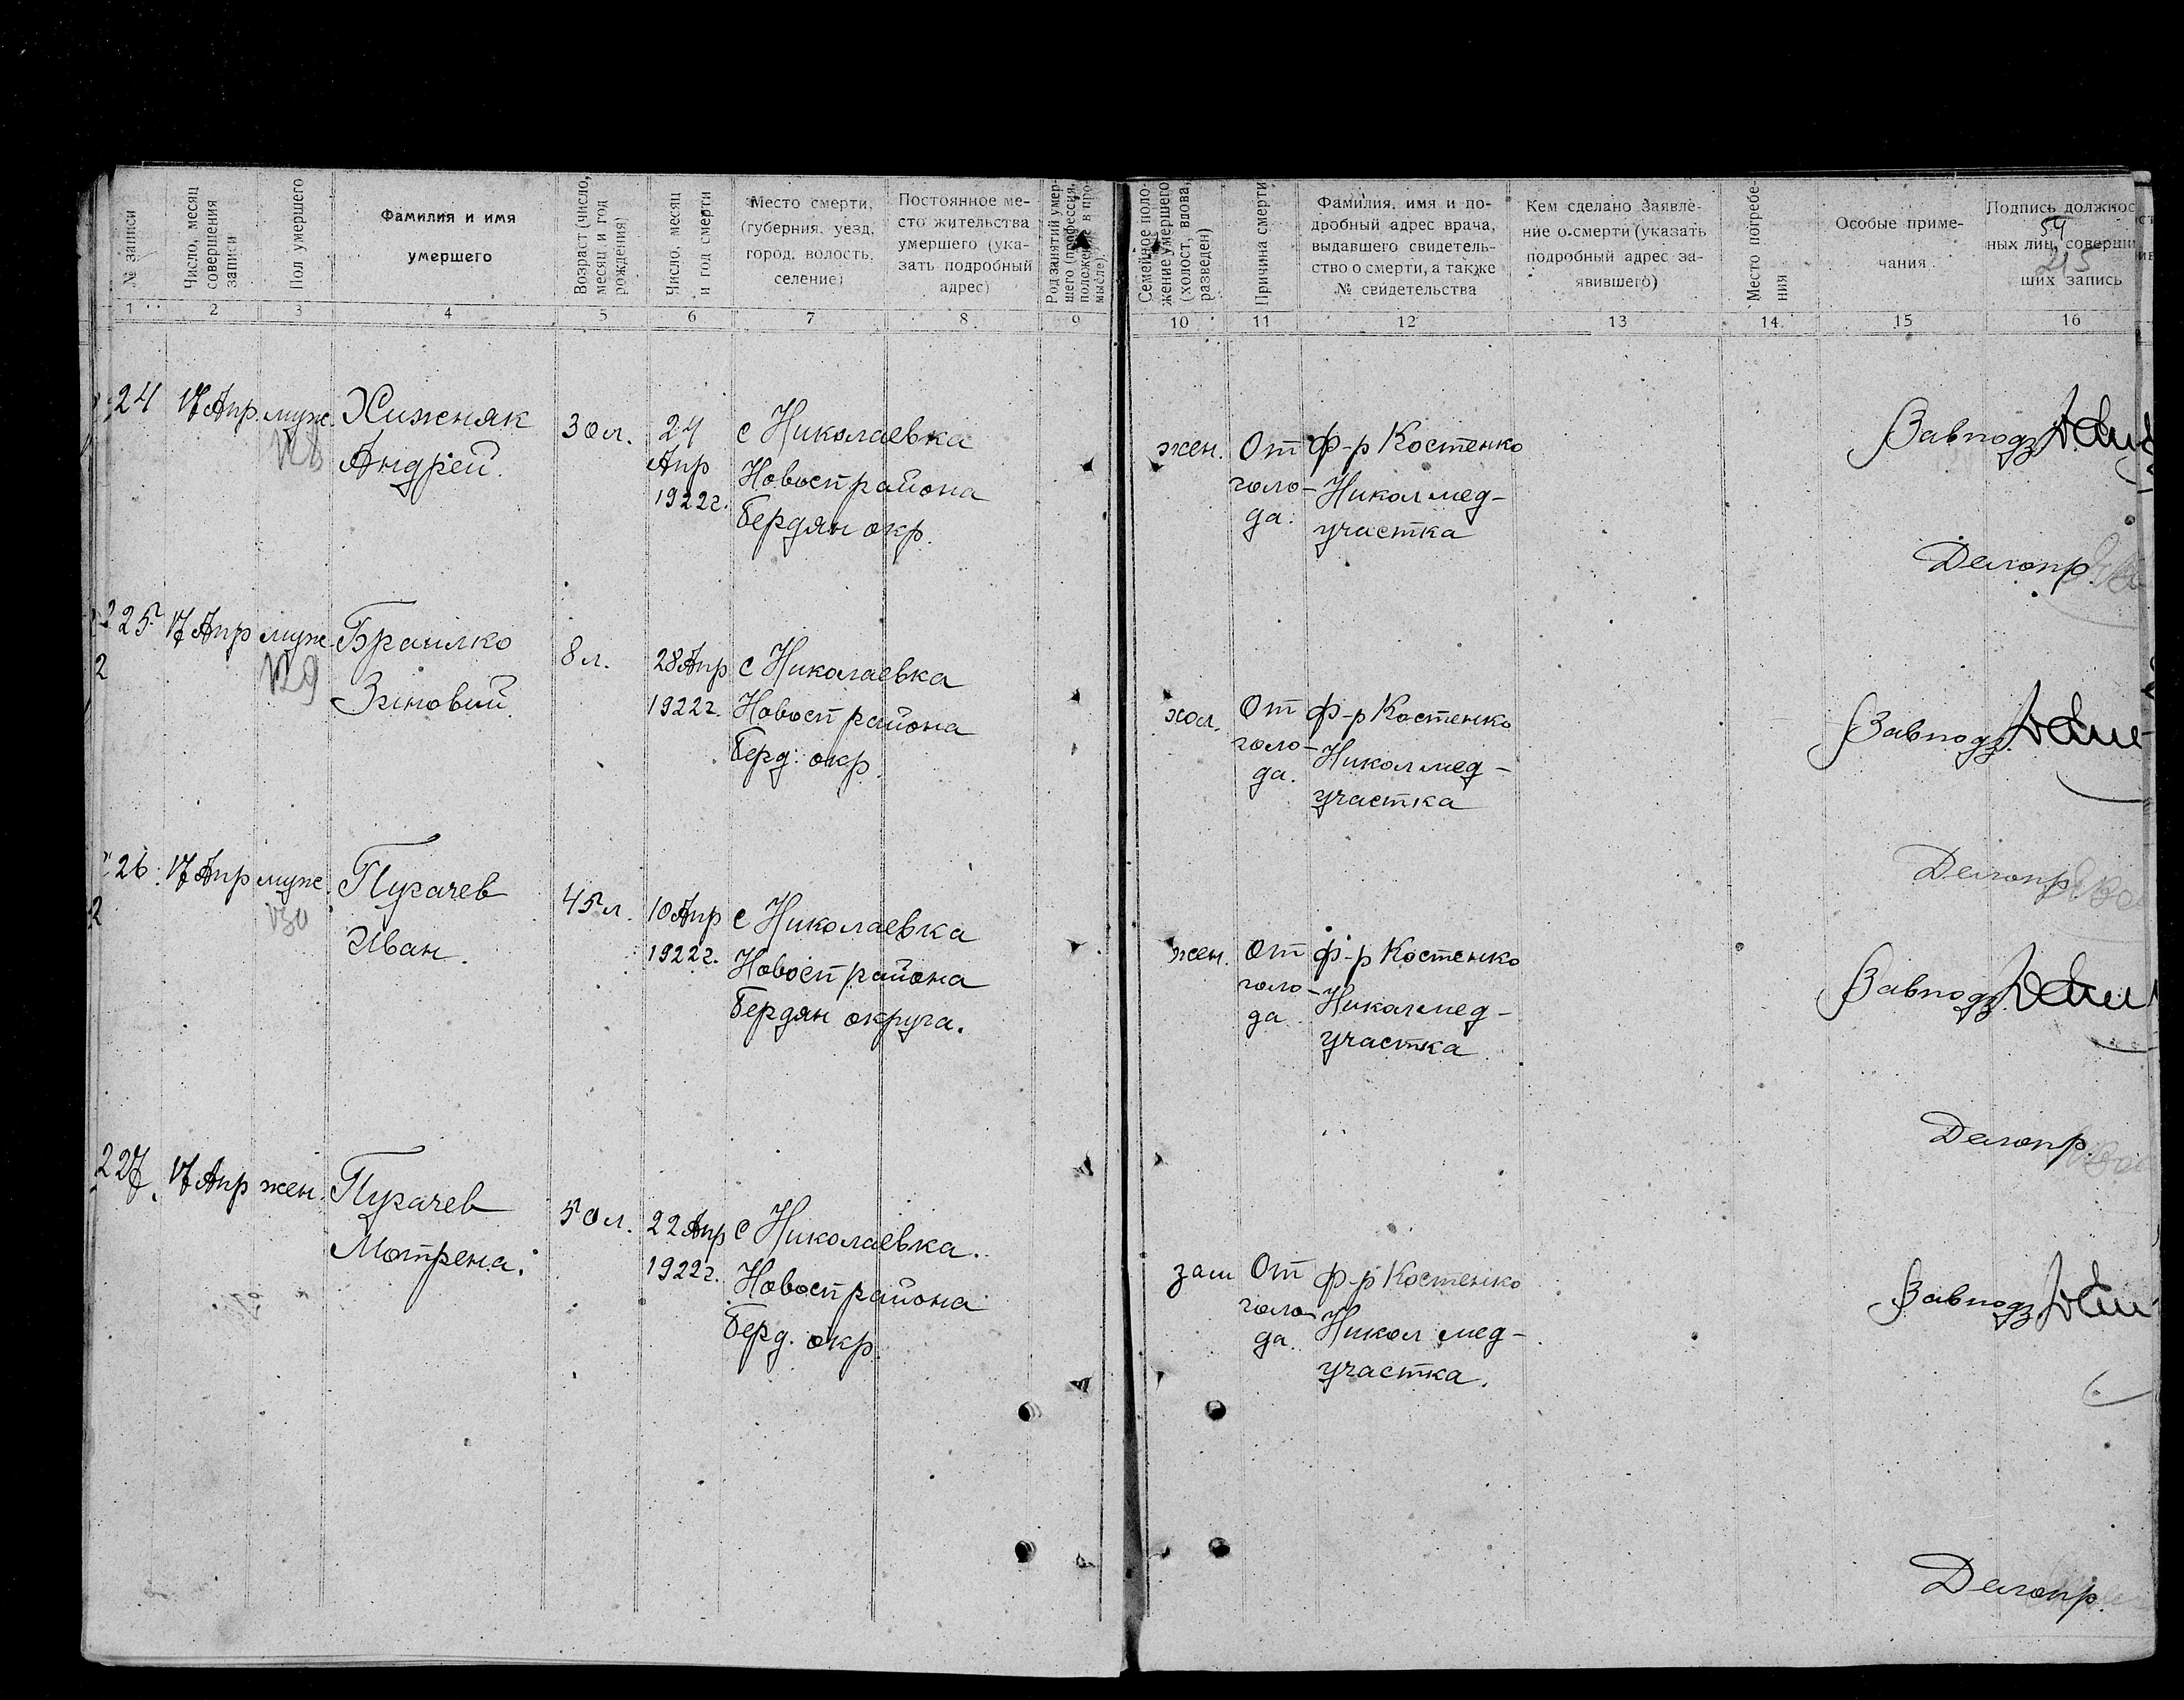 № записи
Число, месяц
совершения
записи
Пол умершего
Фамилия и имя
умершего
Возраст (число,
месяц и год
рождения)
Число, месяц
и год смерти
Место смерти,
(губерния, уезд,
город, волость,
селение)
Постоянное ме-
сто жительства
умершего (ука-
зать подробный
адрес)
Род занятий умер-
шего (профессия,
положение в про-
мысле).
Семейное поло-
жение умершего
(холост, вдова,
разведен)
Причина смерти
Фамилия, имя и по-
дробный адрес врача,
выдавшего свидетель-
ство о смерти, а также
№ свидетельства
Кем сделано заявле-
ние о смерти (указать
подробный адрес за-
явившего)
Место погребе-
ния
Особые приме-
чания
Подпись должнос
54
ных лиц, соверши
215
ших запись
1 2 3 4 5 6 7 8 9 10 11 12 13 14 15 16
24 17 Апр. муж. Хиженяк
Андрей.
128
30 л.
24
Апр
1922г.
с Николаевка
Новосп района
Бердян окр.
жен.
От
голо-
да.
ф-р Костенко
Никол мед-
участка
Завподз
Делопр.
225 17 Апр муж. Браилко
2
Зиновий
129
8 л.
28 Апр
1922г.
с Николаевка
Новосп района
Берд. окр.
хол.
От
голо-
да.
ф-р Костенко
Никол мед-
участка
Завподз.
Делопр.
26 17 Апр муж. Пугачев
2
Иван.
130
45 л.
10 Апр
1922г.
с Николаевка
Новосп района
Бердян округа.
жен.
От
голо-
да
ф-р Костенко
Никол мед-
участка
Завподз.
Делопр.
227 17 Апр жен. Пугачев
Мотрена.
50 л.
22 Апр
1922г.
с Николаевка.
Новосп района
Берд. окр.
зам
От
голо-
да.
ф-р Костенко
Никол мед-
участка.
Завподз
Делопр.